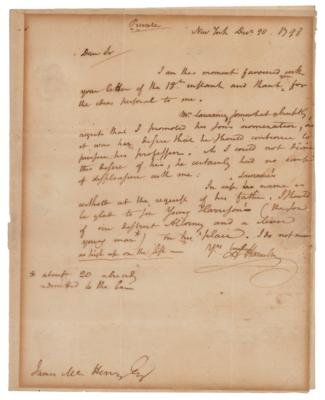 Private
New York Decr 20. 1798
Dear Sir
I am this moment favoured with
your letter of the 18th instant and thank you for
the one personal to me.
Mr Laurance, somewhat abruptly,
regrets that I promoted his son's nomination, as
it was his desire that he should continue to
pursue his profession. As I could not divine
this desire of his, he certainly had no cause
of displeasure with me:
In case his name is
withheld at the request of his father, I should
be glad to see Young Harrison's (the son
of our district Attorney and a clever
young man) in his place. I do not mean
as high up on the list —
Yrs
A Hamilton
* about 20 already
admitted to the bar
James Mc Henry Esq